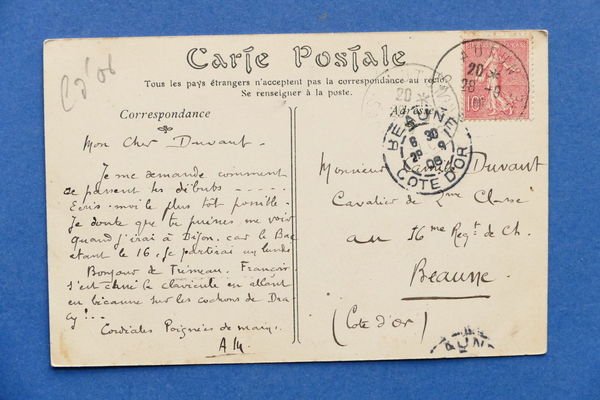 Carte Postale
Tous les pays étrangers n'acceptent pas la correspondance au recto.
Se renseigner à la poste.
Correspondance
Adresse
Mon Cher Duvant -
Je me demande comment
se passent les débuts - - - - -
Ecris-moi le plus tôt possible.
Je doute que tu puisses me voir
quand j'irai à Dijon, car le Bac
étant le 16, je partirai un lundi
Bonjour de Trémeau. François
s'est cassé la clavicule en allant
en bécanne sur les cochons de Dra
cy! - -
Cordiales Poignées de main.
Monsieur Camille Duvant
Cavalier de 2me Classe
au 16me Regt. de Ch.
Beaune.
(Côte d'Or)
C d'Or
BEAUNE
8 30
29 9
08
COTE D'OR
AUTUN
20
28 -9
10c